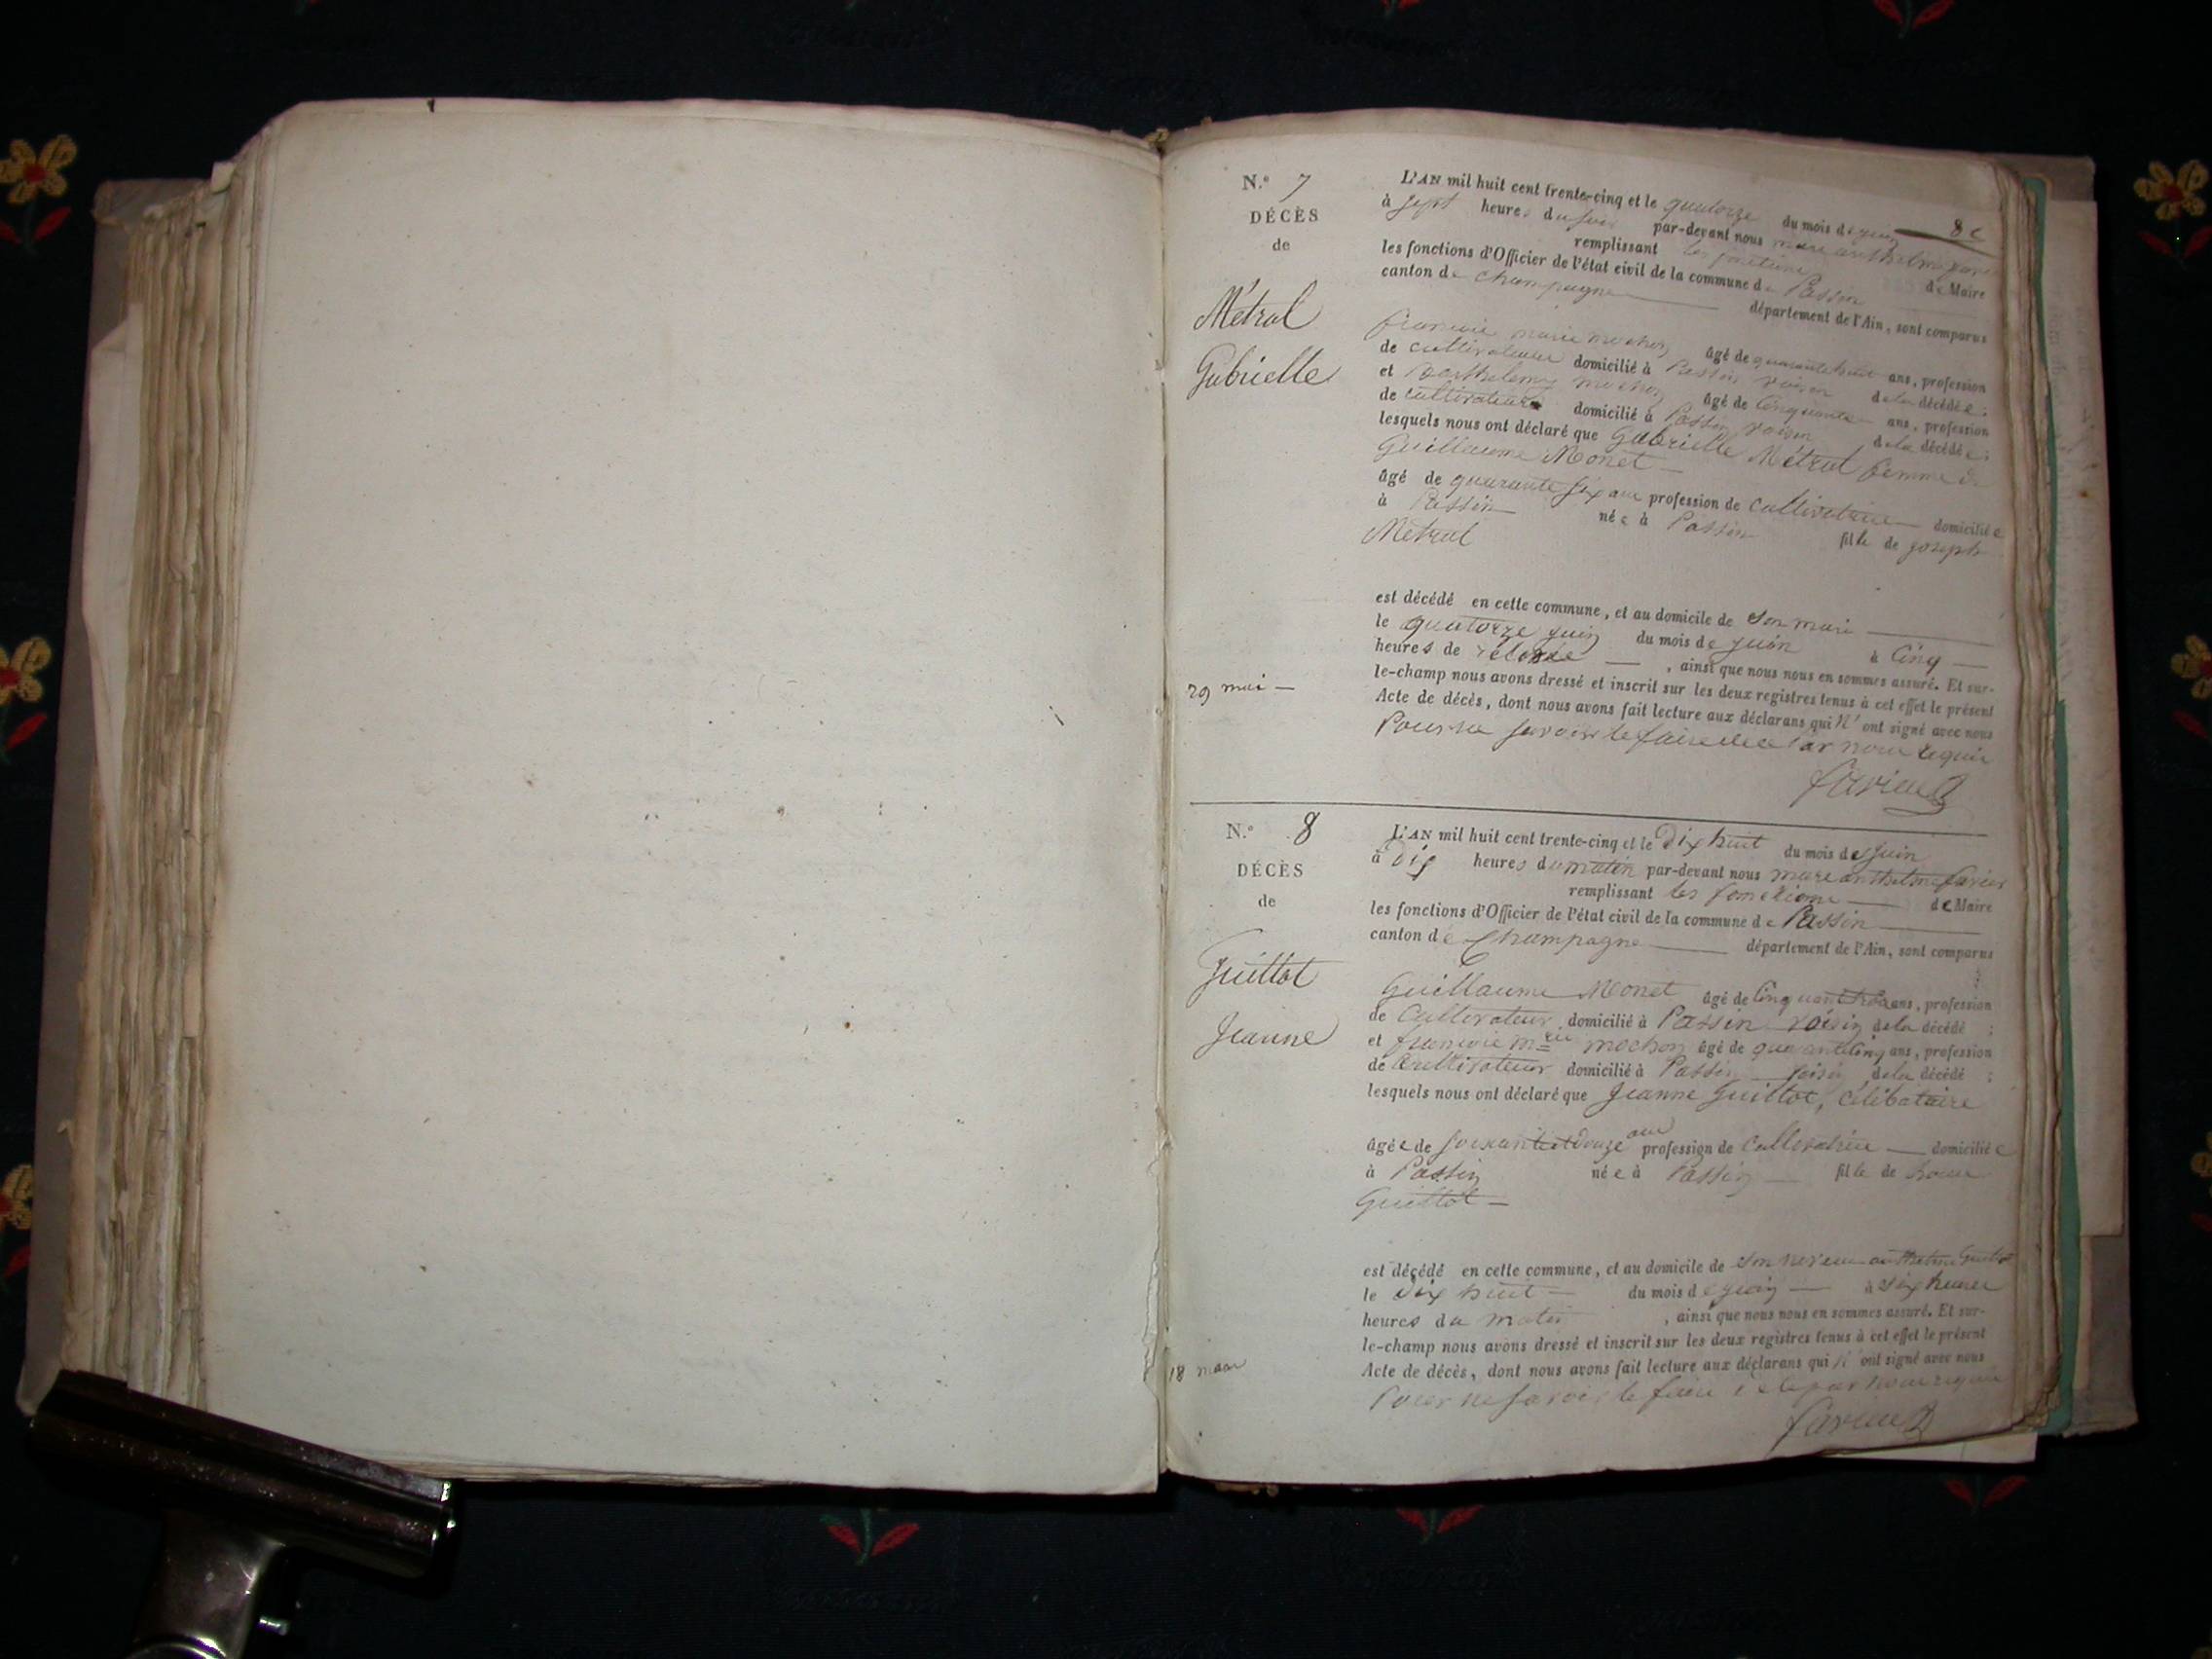 N.º 7
DÉCÈS
de
Métral
Gabrielle
29 mai —
8e
L'AN mil huit cent trente-cinq et le quatorze du mois de juin
à sept heures du soir par-devant nous marc anthelme favier
remplissant les fonctions de Maire
les fonctions d'Officier de l'état civil de la commune de Passin
canton de Champagne département de l'Ain, sont comparus
françois marie mochon âgé de quarante huit ans, profession
de cultivateur domicilié à Passin voisin de la décédée;
et Barthelemy mochon âgé de cinquante ans, profession
de cultivateur domicilié à Passin voisin de la décédée;
lesquels nous ont déclaré que Gabrielle Métral femme de
Guillaume Monet
âgé de quarante six ans profession de cultivatrice domiciliée
à Passin née à Passin fille de joseph
Métral
est décédé en cette commune, et au domicile de son mari
le quatorze juin du mois de juin à cinq
heures de , ainsi que nous nous en sommes assuré. Et sur-
le-champ nous avons dressé et inscrit sur les deux registres tenus à cet effet le présent
Acte de décès, dont nous avons fait lecture aux déclarans qui n'ont signé avec nous
Pour ne savoir le faire de ce par nous requis
N.º 8
DÉCÈS
de
Guillot
Jeanne
18 mars
L'AN mil huit cent trente-cinq et le Dix huit du mois de juin
à dix heures du matin par-devant nous marc anthelme favier
remplissant les fonctions de Maire
les fonctions d'Officier de l'état civil de la commune de Passin
canton de Champagne département de l'Ain, sont comparus
Guillaume Monet âgé de cinquante trois ans, profession
de Cultivateur domicilié à Passin voisin de la décédé;
et françois m.rie mochon âgé de quarante cinq ans, profession
de Cultivateur domicilié à Passin voisin de la décédé;
lesquels nous ont déclaré que Jeanne Guillot, célibataire
âgée de soixante et douze ans profession de cultivatrice domiciliée
à Passin née à Passin fille de
Guillot —
est décédé en cette commune, et au domicile de son neveu anthelme Guillot
le dix huit du mois de juin à six heures
heures du matin , ainsi que nous nous en sommes assuré. Et sur-
le-champ nous avons dressé et inscrit sur les deux registres tenus à cet effet le présent
Acte de décès, dont nous avons fait lecture aux déclarans qui n'ont signé avec nous
Pour ne savoir le faire de ce par nous requis